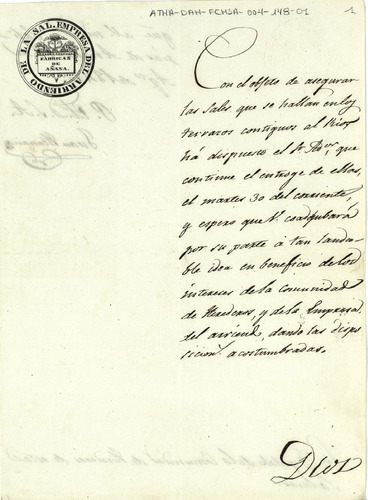 ATHA-DAH-FCHSA-004-148-01
1
EMPRESA DEL ARRIENDO DE LA SAL.
FÁBRICAS
DE
AÑANA.
Con el objeto de asegurar
las sales que se hallan en los
terrazos contiguos al Rio,
há dispuesto el Sr. Ador. que
continue el entroge de ellas,
el martes 30 del corriente,
y espero que V. coadyubará
por su parte á tan lauda-
ble idea en beneficio de los
intereses de la comunidad
de Herederos, y de la Empresa
del arriend. dando las dispo
sicion. acostumbradas.
Dios